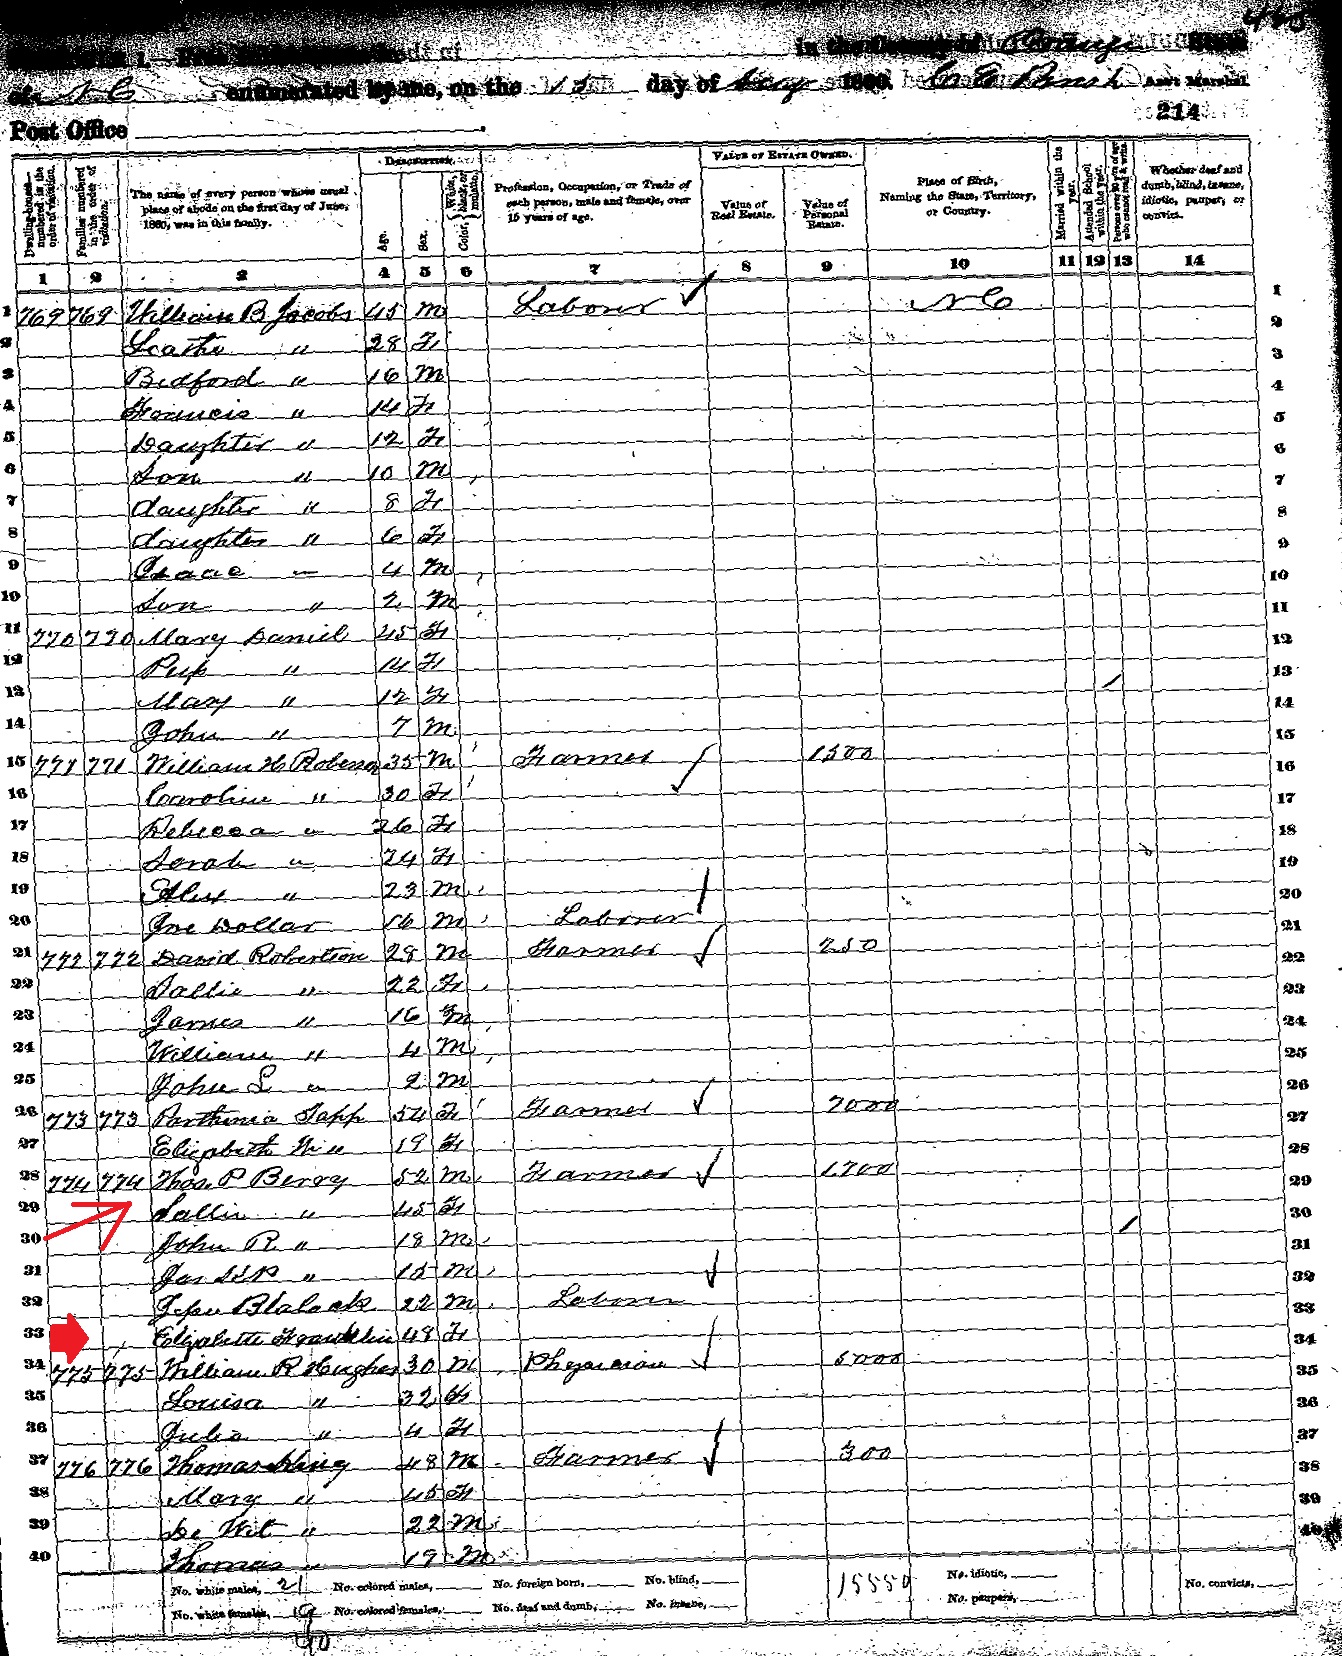 in the County of Orange State
of N C enumerated by me, on the 15 day of Aug 1860. C E Ass't Marshal
214
Post Office
DESCRIPTION. VALUE OF ESTATE OWNED.
Dwelling-houses— numbered in the order of visitation. Families numbered in the order of visitation. The name of every person whose usual place of abode on the first day of June, 1860, was in this family. Age. Sex. Color, White, black, or mulatto. Profession, Occupation, or Trade of each person, male and female, over 15 years of age. Value of Real Estate. Value of Personal Estate. Place of Birth, Naming the State, Territory, or Country. Married within the year. Attended School within the year. Persons over 20 y'rs of age who cannot read & write. Whether deaf and dumb, blind, insane, idiotic, pauper, or convict.
1 2 3 4 5 6 7 8 9 10 11 12 13 14
1 769 769 William B Jacobs 45 M Laborer N C 1
2 28 F 2
3 Bedford " 16 M 3
4 Francis " 14 F 4
5 Daughter " 12 F 5
6 Son " 10 M 6
7 daughter " 8 F 7
8 daughter " 6 F 8
9 Isaac " 4 M 9
10 Son " 2 M 10
11 770 770 Mary Daniel 45 F 11
12 " 14 F 12
13 Mary " 12 F / 13
14 John " 7 M 14
15 771 771 William H 35 M Farmer 1500 15
16 Caroline " 30 F 16
17 Rebecca " 26 F 17
18 Sarah " 24 F 18
19 " 23 M 19
20 Joe Dollar 16 M Laborer 20
21 772 772 David Robertson 28 M Farmer 250 21
22 Sallie " 22 F 22
23 James " 16 M 23
24 William " 4 M 24
25 John S " 2 M 25
26 773 773 Parthenia Tapp 54 F Farmer 7000 26
27 Elizabeth " 19 F 27
28 774 774 Thos P Berry 52 M Farmer 1700 28
29 Sallie " 45 F 29
30 John R " 18 M / 30
31 Jas " 15 M 31
32 Blalock 22 M Laborer 32
33 Elizabeth Franklin 48 F 33
34 775 775 William R Hughes 30 M Physician 5000 34
35 Louisa " 32 F 35
36 Julia " 4 F 36
37 776 776 Thomas King 48 M Farmer 300 37
38 Mary " 45 F 38
39 De Wit " 22 M 39
40 Thomas " 19 M 40
No. white males, 21 No. colored males, No. foreign born, No. blind, 15550 No. idiotic, No. convicts,
No. white females, 19 No. colored females, No. deaf and dumb, No. insane, No. paupers,
40